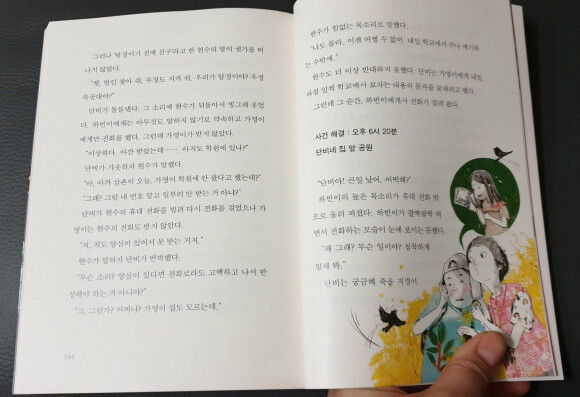 그러나 '탐정이기 전에 친구'라고 한 현수의 말이 뗐가를 떠
나지 않았다.
"쳇, 범인 찾아 줘, 우정도 지켜 줘. 우리가 탐정이야? 우정
특공대야?"
단비가 툴툴댔다. 그 소리에 현수가 뒤돌아서 빙그레 웃었
다. 하빈이에게는 아무것도 말하지 않기로 약속하고 가영이
에게만 전화를 했다. 그런데 가영이가 받지 않았다.
"이상하다. 아깐 받았는데……. 아직도 학원에 있나?"
단비가 갸웃하자 현수가 말했다.
"아, 아까 삼촌이 오늘, 가영이 학원에 안 왔다고 했는데?"
"그래? 그럼 내 번호 알고 일부러 안 받는 거 아냐?"
단비가 현수의 휴대 전화를 빌려 다시 전화를 걸었으나 가
영이는 현수의 전화도 받지 않았다.
"저, 저도 양심이 있어서 못 받는 거지."
현수가 말하자 단비가 반박했다.
"무슨 소리? 양심이 있다면 전화로라도 고백하고 나서 반
성해야 하는 거 아니야?"
"그, 그런가? 어쩌나? 가영이 집도 모르는데."
144
현수가 힘없는 목소리로 말했다.
"나도 몰라. 이젠 어쩔 수 없어. 내일 학교에서 만나 얘기하
는 수밖에."
현수도 더 이상 반대하지 못했다. 단비는 가영이에게 내일
아침 일찍 학교에서 보자는 내용의 문자를 보내려고 했다.
그런데 그 순간, 하빈이에게서 전화가 걸려 왔다.
사건 해결 : 오후 6시 20분
단비네 집 앞 공원
"단비야! 큰일 났어. 어떡해?"
하빈이의 높은 목소리가 휴대 전화 밖
으로 울려 퍼졌다. 하빈이가 팔짝팔짝 뛰
면서 전화하는 모습이 눈에 보이는 듯했다.
"왜 그래? 무슨 일이야? 침착하게
말해 봐."
단비는 궁금해 죽을 지경이